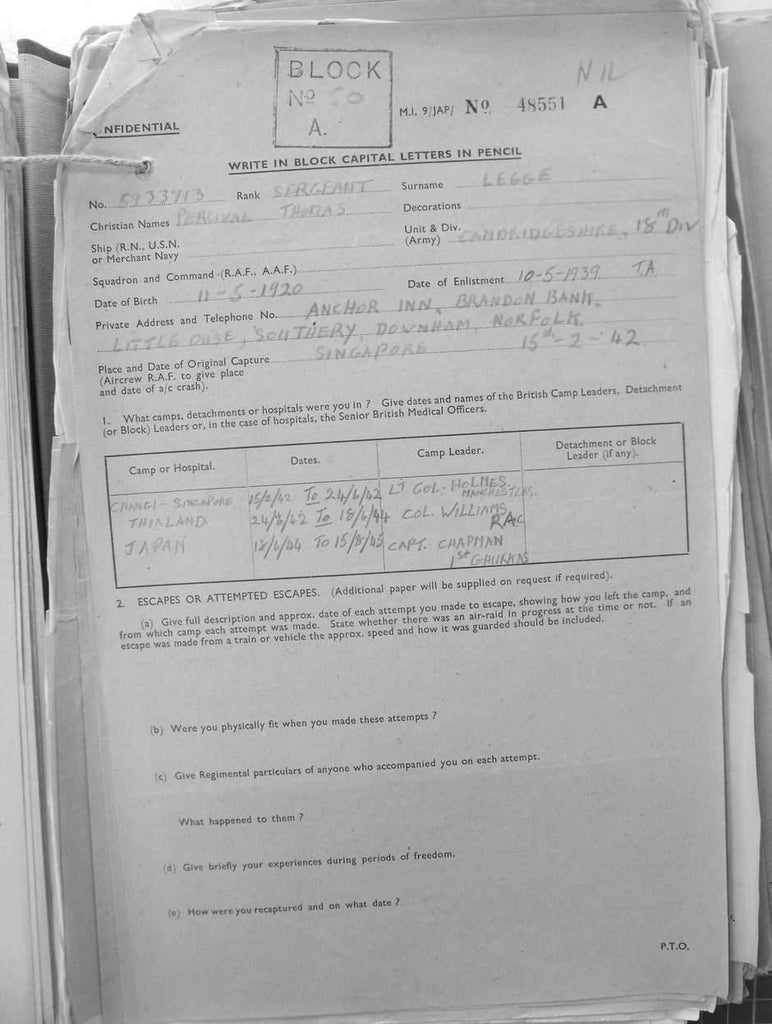 BLOCK
Nº 50
A.
NIL
M.I. 9/JAP/ No. 48551 A
NFIDENTIAL
WRITE IN BLOCK CAPITAL LETTERS IN PENCIL
No. 5933713 Rank SERGEANT Surname LEGGE
Christian Names PERCIVAL THOMAS Decorations
Ship (R.N., U.S.N. or Merchant Navy
Unit & Div. (Army) CAMBRIDGESHIRE, 18TH DIV
Squadron and Command (R.A.F., A.A.F.)
Date of Birth 11-5-1920 Date of Enlistment 10-5-1939. T.A
Private Address and Telephone No. ANCHOR INN, BRANDON BANK,
LITTLE OUSE, SOUTHERY, DOWNHAM, NORFOLK.
Place and Date of Original Capture SINGAPORE 15th-2-'42.
(Aircrew R.A.F. to give place
and date of a/c crash).
1. What camps, detachments or hospitals were you in ? Give dates and names of the British Camp Leaders, Detachment
(or Block) Leaders or, in the case of hospitals, the Senior British Medical Officers.
Camp or Hospital. Dates. Camp Leader. Detachment or Block Leader (if any).
CHANGI - SINGAPORE 15/2/42 To 24/6/42 LT COL. HOLMES. MANCHESTERS.
THIALAND. 24/6/42 To 18/6/44 COL. WILLIAMS
JAPAN 18/6/44 To 15/8/45 CAPT. CHAPMAN 1ST GHURKAS
2. ESCAPES OR ATTEMPTED ESCAPES. (Additional paper will be supplied on request if required).
(a) Give full description and approx. date of each attempt you made to escape, showing how you left the camp, and
from which camp each attempt was made. State whether there was an air-raid in progress at the time or not. If an
escape was made from a train or vehicle the approx. speed and how it was guarded should be included.
(b) Were you physically fit when you made these attempts ?
(c) Give Regimental particulars of anyone who accompanied you on each attempt.
What happened to them ?
(d) Give briefly your experiences during periods of freedom.
(e) How were you recaptured and on what date ?
P.T.O.